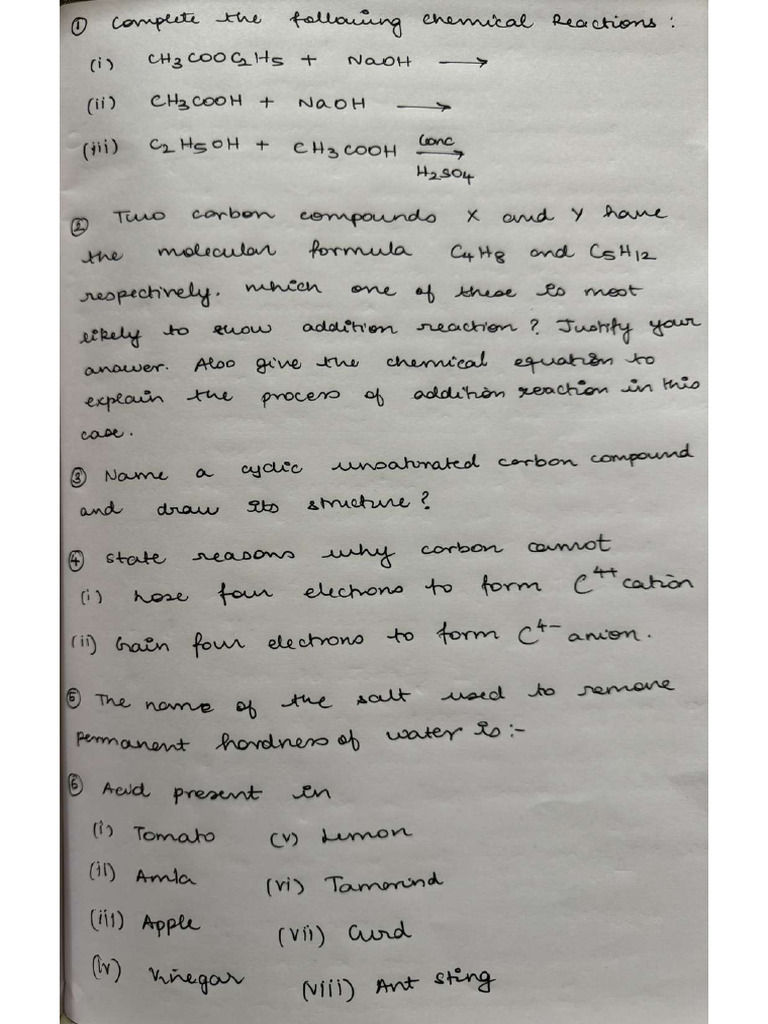 ① Complete the following chemical Reactions :
(i) CH3COOC2H5 + NaOH ⟶
(ii) CH3COOH + NaOH ⟶
(iii) C2H5OH + CH3COOH Conc ⟶ H2SO4
② Two carbon compounds X and Y have
the molecular formula C4H8 and C5H12
respectively. Which one of these is most
likely to show addition reaction? Justify your
answer. Also give the chemical equation to
explain the process of addition reaction in this
case.
③ Name a cyclic unsaturated carbon compound
and draw its structure?
④ State reasons why carbon cannot
(i) lose four electrons to form C4+ cation
(ii) Gain four electrons to form C4- anion.
⑤ The name of the salt used to remove
permanent hardness of water is :-
⑥ Acid present in
(i) Tomato (v) Lemon
(ii) Amla (vi) Tamarind
(iii) Apple (vii) Curd
(iv) Vinegar (viii) Ant sting